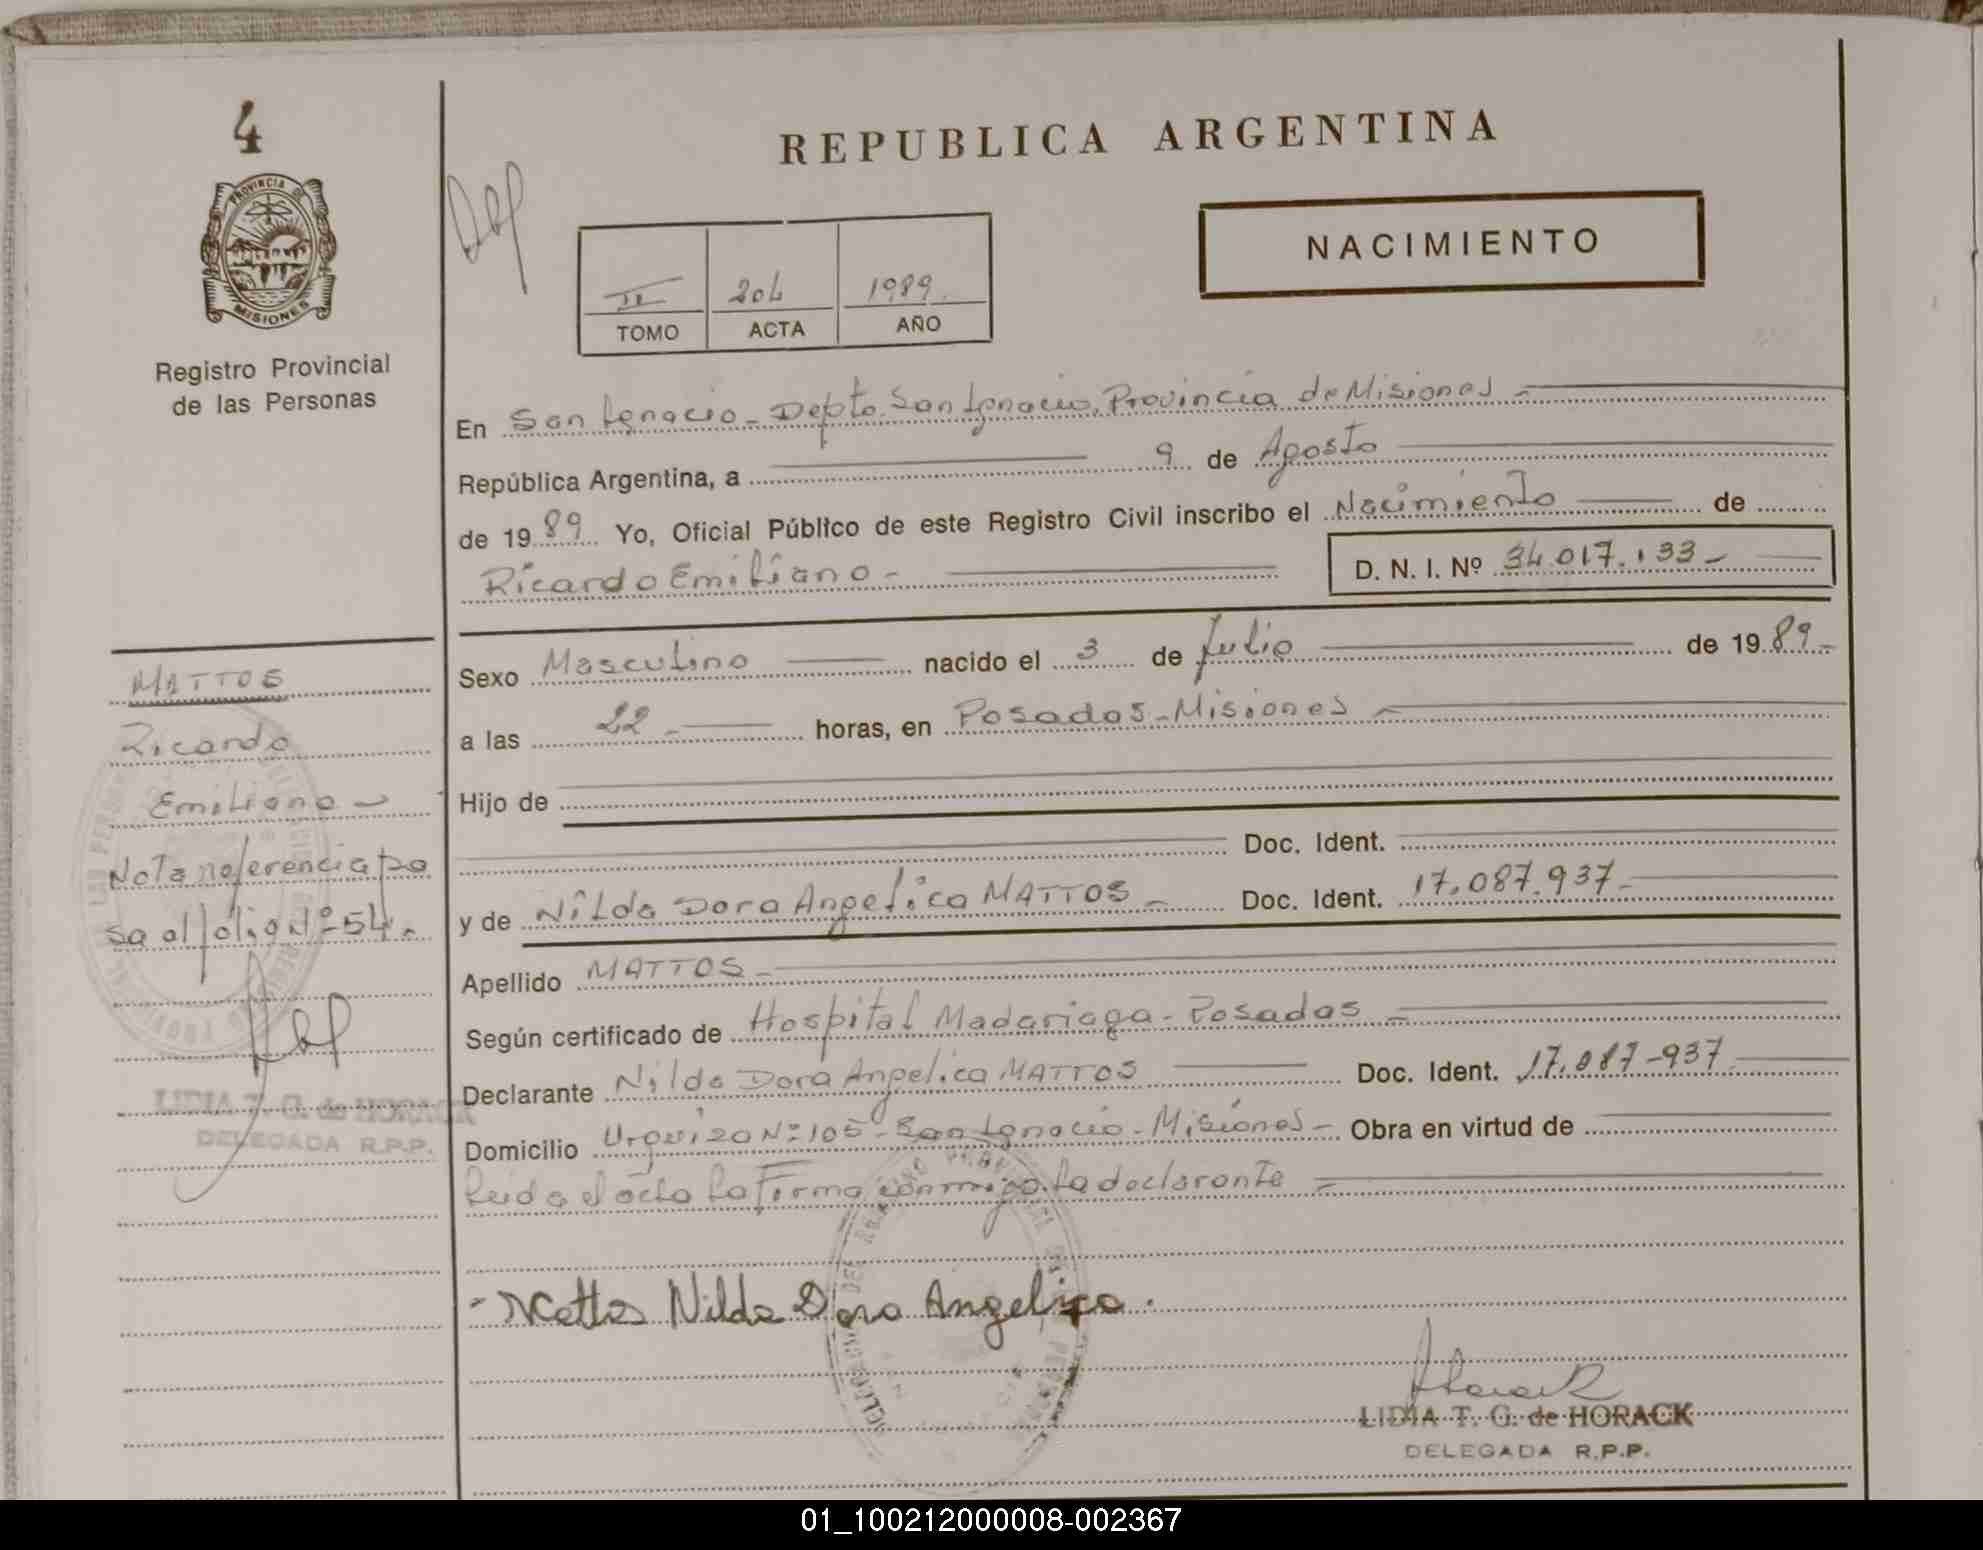 4
PROVINCIA DE
MISIONES
Registro Provincial
de las Personas
REPUBLICA ARGENTINA
NACIMIENTO
II 204 1989
TOMO ACTA AÑO
En San Ignacio - Depto. San Ignacio, Provincia de Misiones -
República Argentina, a 9 de Agosto
de 1989 Yo, Oficial Público de este Registro Civil inscribo el Nacimiento de
Ricardo Emiliano - D. N. I. Nº 34.017.133-
Sexo Masculino nacido el 3 de Julio de 1989-
a las 22 - horas, en Posadas - Misiones -
Hijo de
Doc. Ident.
y de Nilda Dora Angelica MATTOS - Doc. Ident. 17.087.937-
Apellido MATTOS -
Según certificado de Hospital Madariaga - Posadas -
Declarante Nilda Dora Angelica MATTOS Doc. Ident. 17.087-937-
Domicilio Urquiza Nº 105 - San Ignacio - Misiones - Obra en virtud de
leida el acta la Firma conmigo la declarante -
- Mattos Nilda Dora Angelica.
LIDIA T. G. de HORACK
DELEGADA R.P.P.
MATTOS
Ricardo
Emiliano -
Nota referencia pa
sa al folio Nº 54 -
LIDIA T. G. de HORACK
DELEGADA R.P.P.
01_100212000008-002367